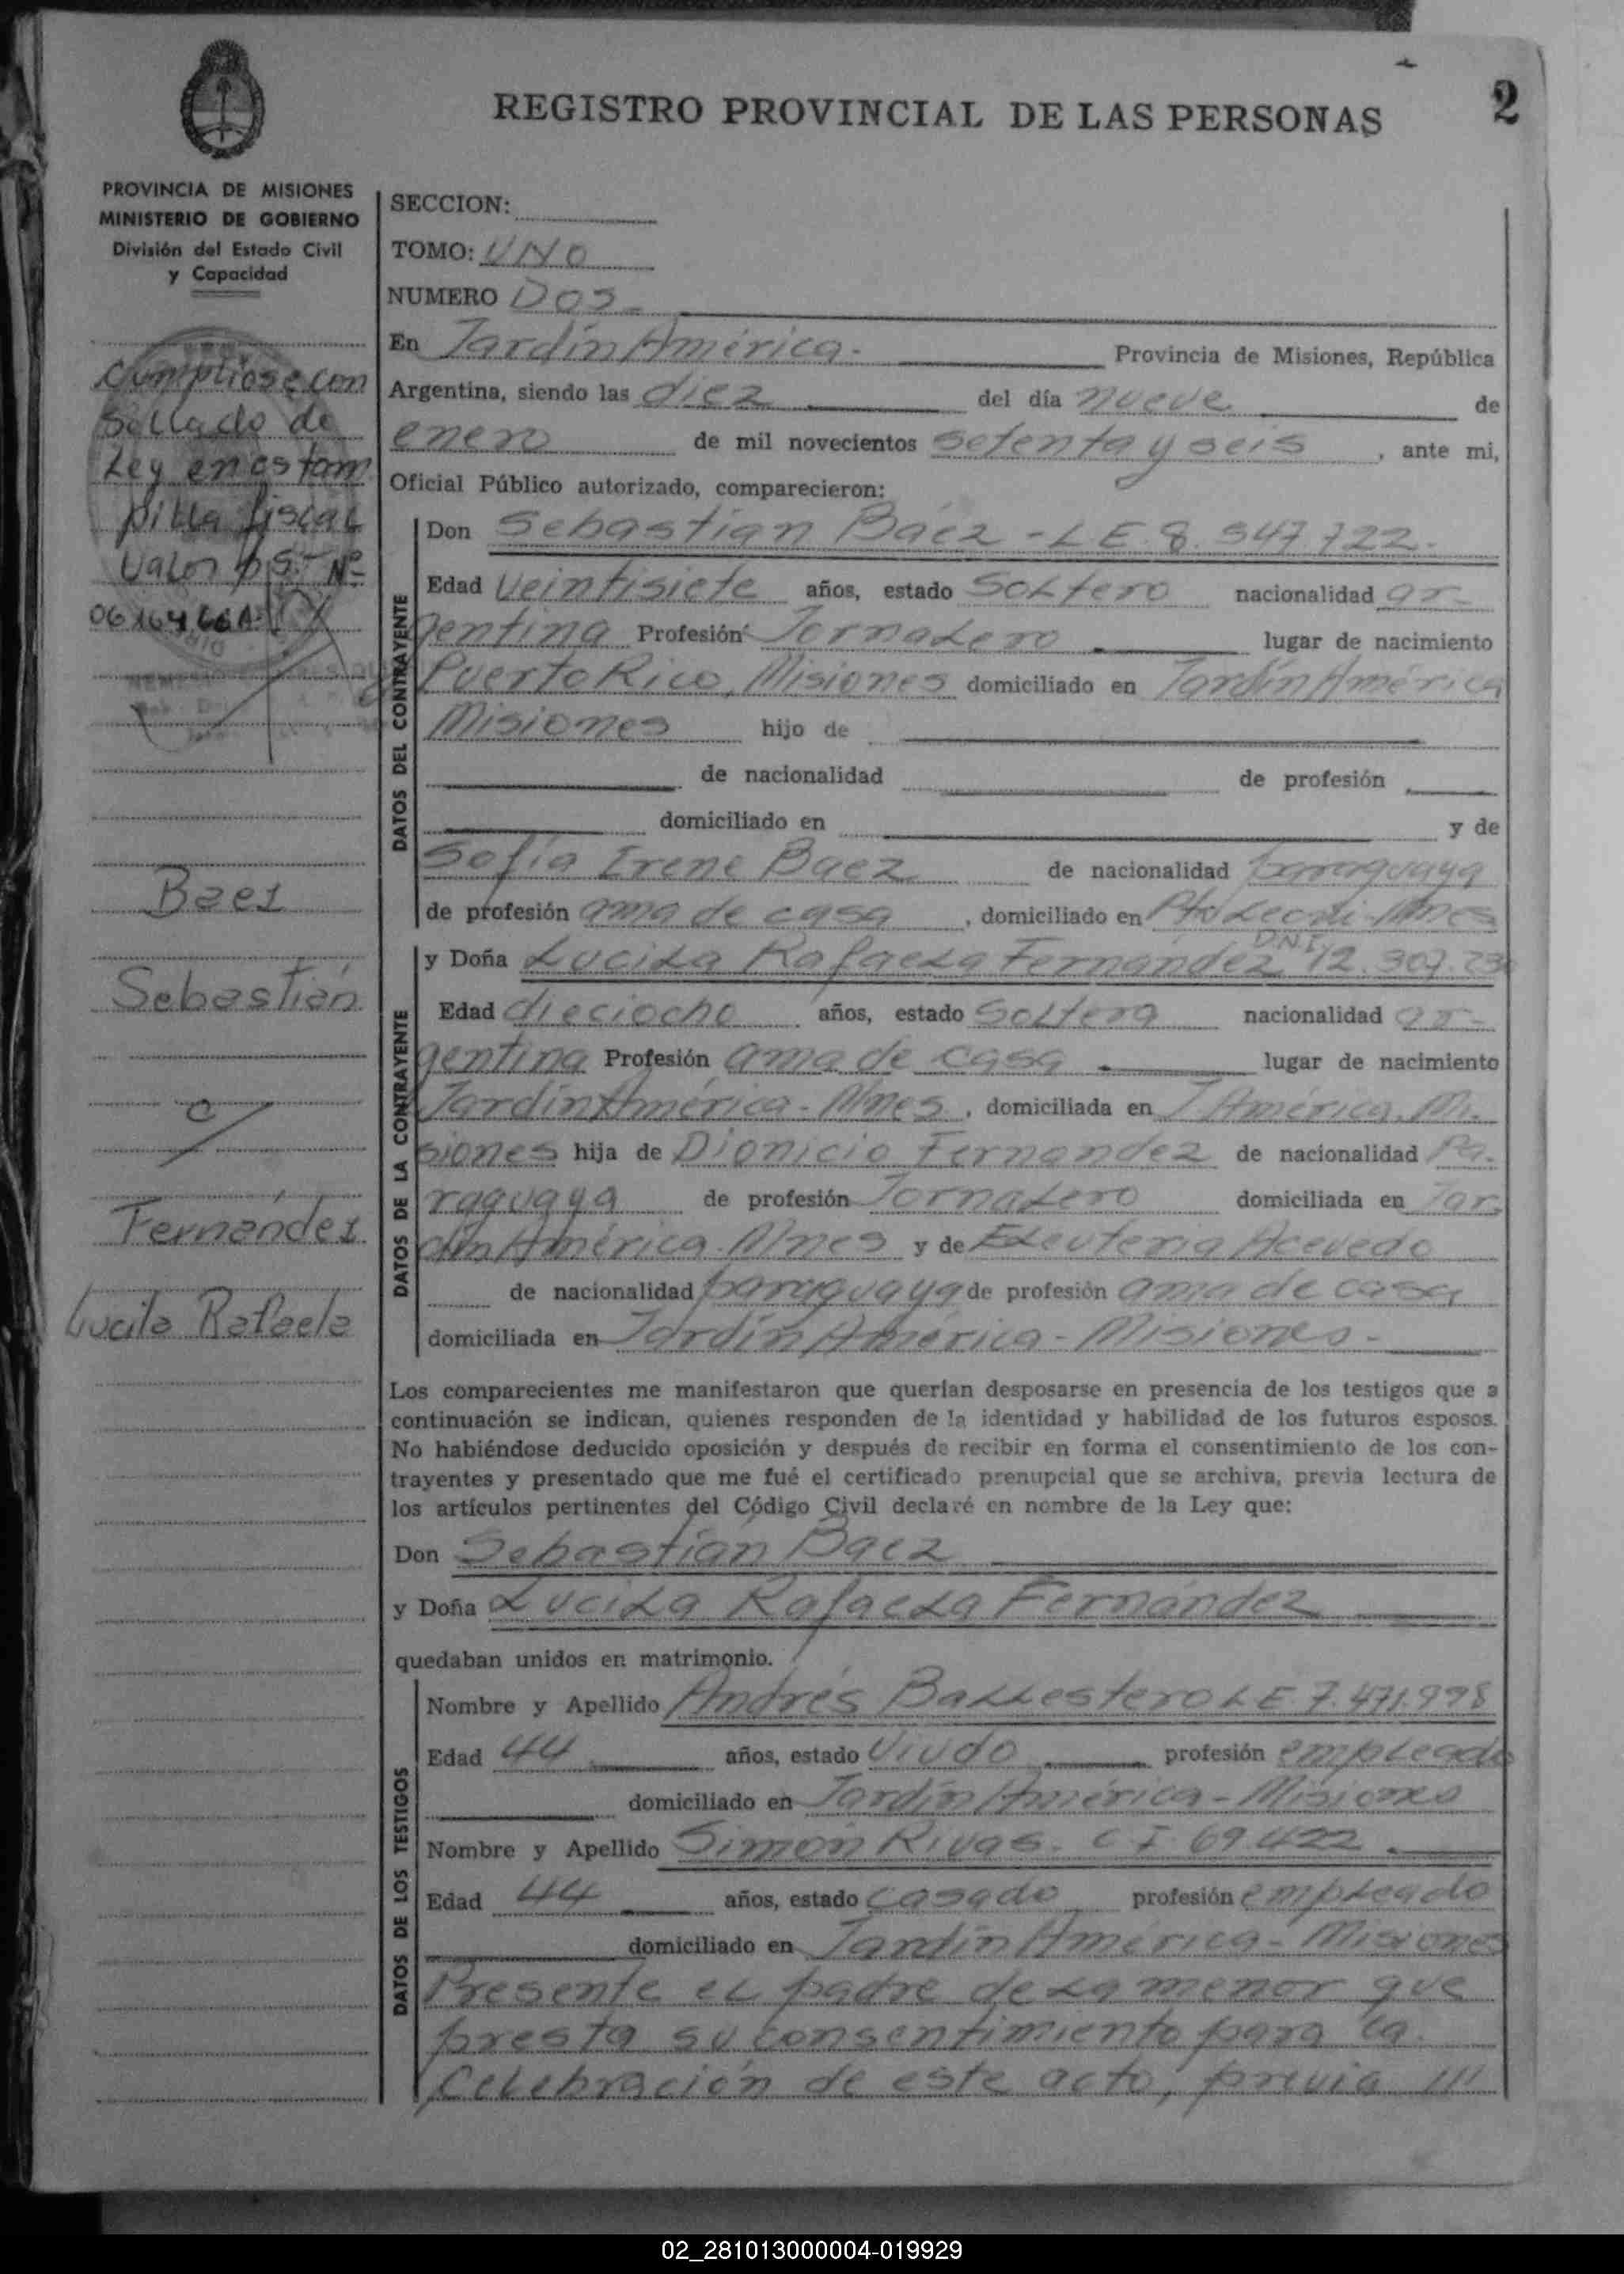 2
REGISTRO PROVINCIAL DE LAS PERSONAS
PROVINCIA DE MISIONES
MINISTERIO DE GOBIERNO
División del Estado Civil
y Capacidad
Cumpliose con
Sellado de
Ley en estam
pilla fiscal
Valor p/s. Nº
Baez
Sebastián
c/
Fernández
Lucila Rafaela
SECCION:
TOMO: UNO
NUMERO DOS
En Jardín América. Provincia de Misiones, República
Argentina, siendo las diez del día nueve de
enero de mil novecientos setenta y seis, ante mi,
Oficial Público autorizado, comparecieron:
DATOS DEL CONTRAYENTE
Don Sebastián Báez - L E. 8.547.722.
Edad veintisiete años, estado soltero nacionalidad ar-
gentina Profesión Jornalero lugar de nacimiento
Puerto Rico, Misiones domiciliado en Jardín América
Misiones hijo de
de nacionalidad de profesión
domiciliado en y de
Sofía Irene Baez de nacionalidad paraguaya
de profesión ama de casa, domiciliado en Pto Leoni-Mnes
DATOS DE LA CONTRAYENTE
y Doña Lucila Rafaela Fernández D.N.I. 12.307.
Edad dieciocho años, estado soltera nacionalidad ar-
gentina Profesión ama de casa lugar de nacimiento
Jardín América - Mnes, domiciliada en J América. Mi-
siones hija de Dionicio Fernandez de nacionalidad Pa-
raguaya de profesión Jornalero domiciliada en Jar-
dín América. Mnes y de Eleuteria Acevedo
de nacionalidad paraguaya de profesión ama de casa
domiciliada en Jardín América - Misiones -
Los comparecientes me manifestaron que querían desposarse en presencia de los testigos que a
continuación se indican, quienes responden de la identidad y habilidad de los futuros esposos.
No habiéndose deducido oposición y después de recibir en forma el consentimiento de los con-
trayentes y presentado que me fué el certificado prenupcial que se archiva, previa lectura de
los artículos pertinentes del Código Civil declaré en nombre de la Ley que:
Don Sebastián Baez
y Doña Lucila Rafaela Fernández
quedaban unidos en matrimonio.
DATOS DE LOS TESTIGOS
Nombre y Apellido Andrés Ballestero L E 7.471.998
Edad 44 años, estado Viudo profesión empleado
domiciliado en Jardín América - Misiones
Nombre y Apellido Simón Rivas. C I 69.422.
Edad 44 años, estado casado profesión empleado
domiciliado en Jardín América - Misiones
Presente el padre de la menor que
presta su consentimiento para la
celebración de este acto, previa ///
02_281013000004-019929